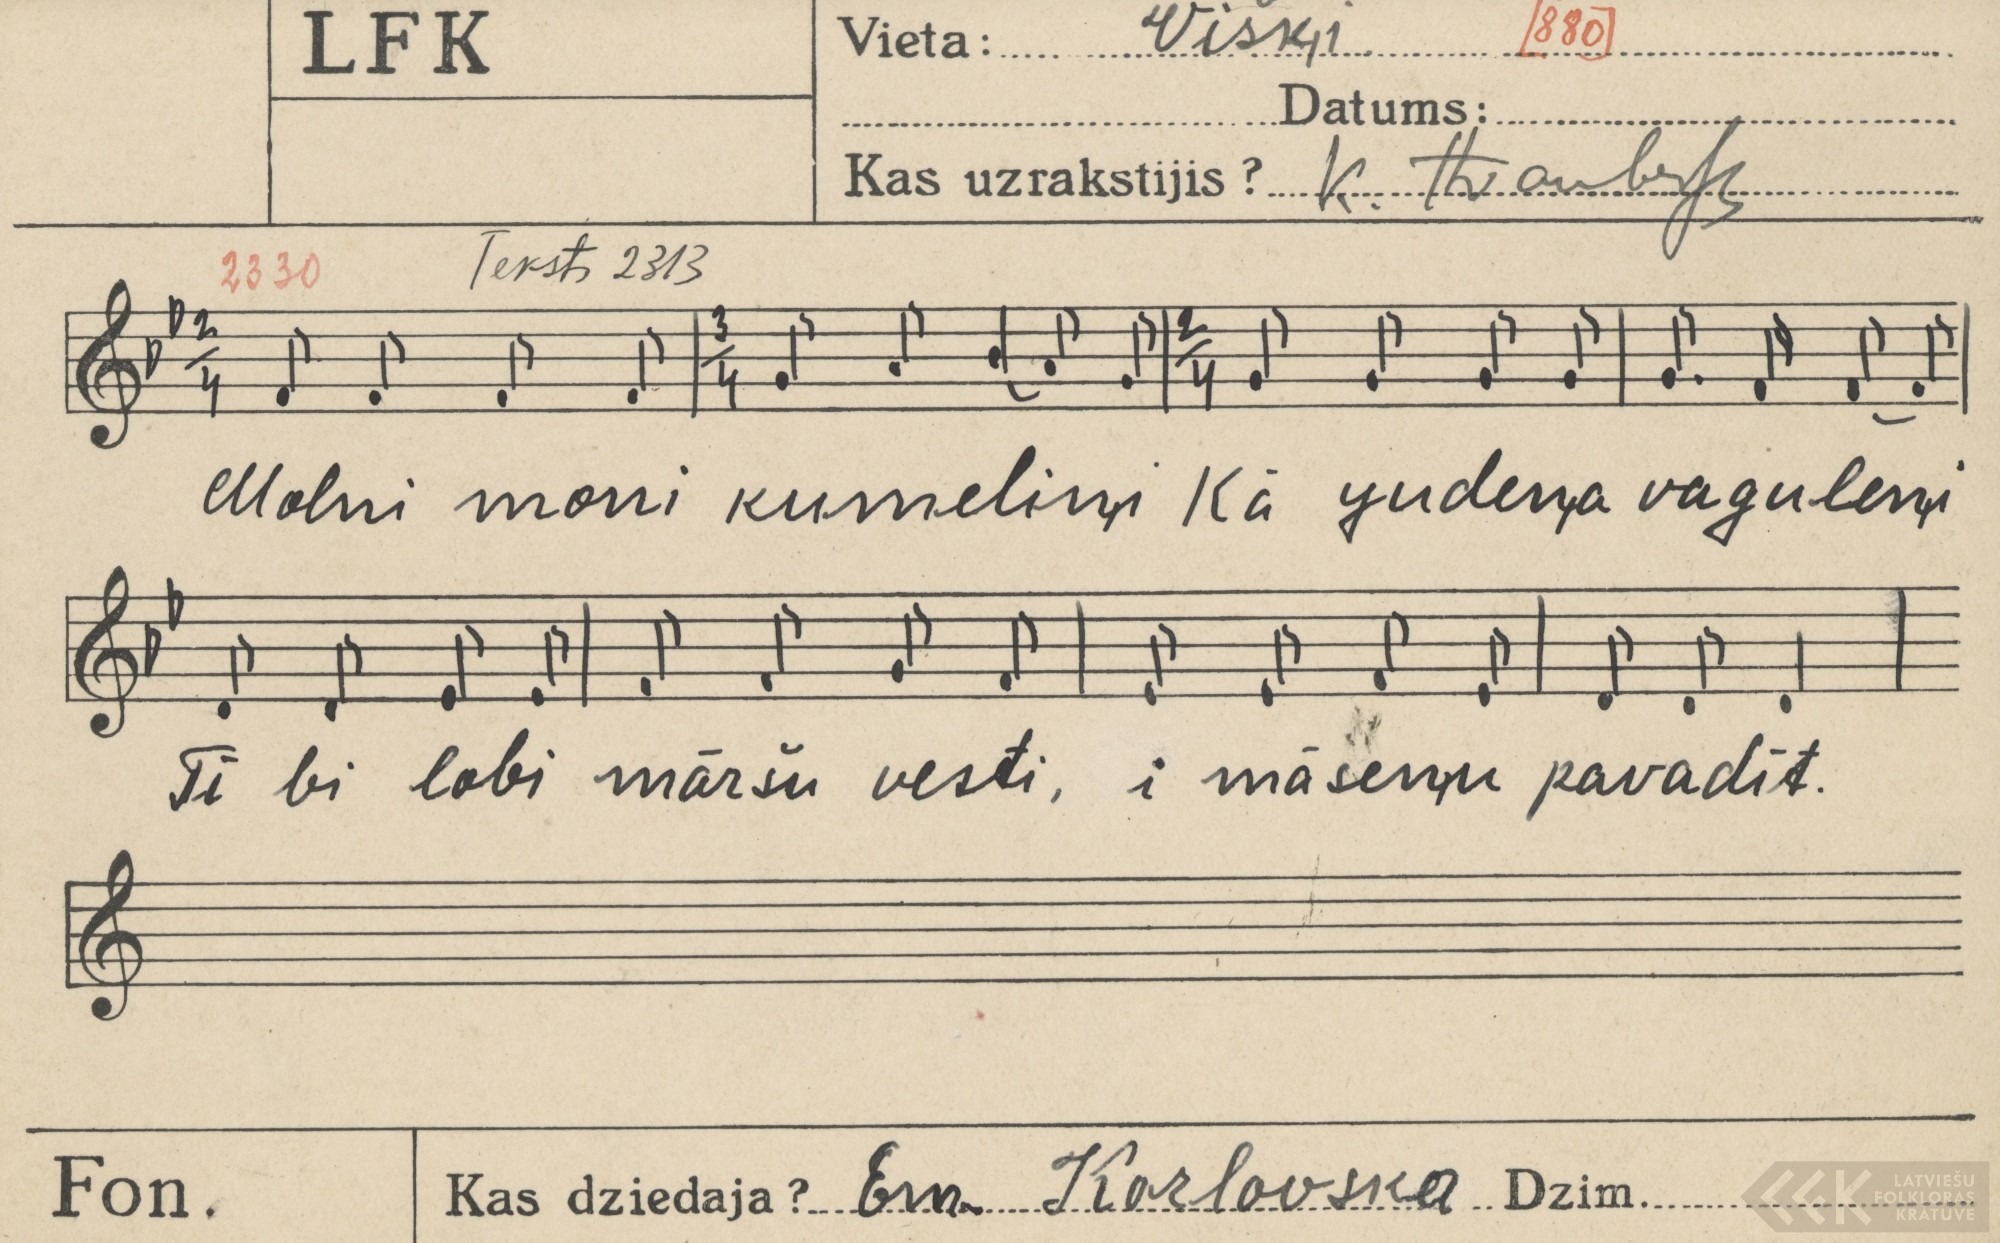 LFK
Vieta: Višķi [880]
Datums:
Kas uzrakstijis? K.
2330 Teksts 2313
2/4 3/4 2/4
Molni moni kumeliņi Kā yudeņa vaguleņi
Tī bi lobi māršu vesti, i māseņu pavadīt.
Fon. Kas dziedaja? Em. Kozlovska Dzim.
LATVIEŠU
FOLKLORAS
KRATUVE